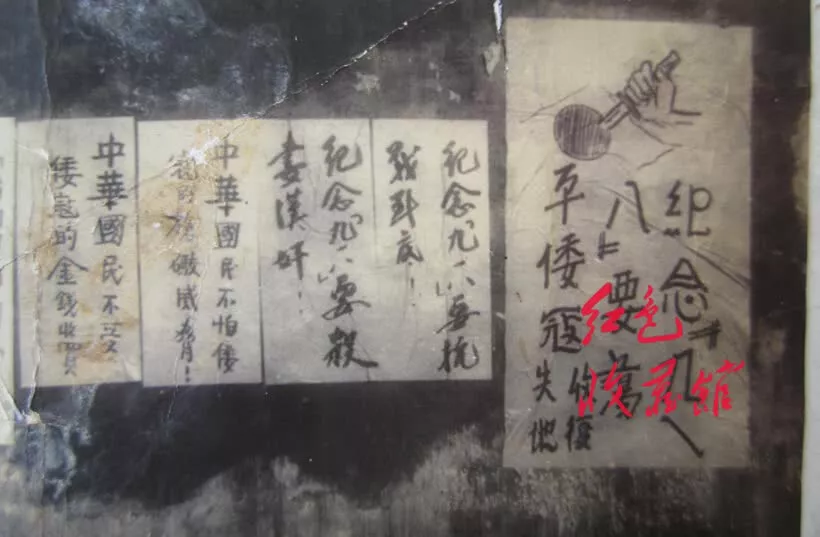 紀念〝九一
八〞要
平倭寇
復
失地
紀念〝九·一八〞要抗
戰到底！
紀念〝九·一八〞要殺
漢奸！
中華國民不怕倭
寇的槍礮威脅！
中華國民不受
倭寇的金錢收買
红色
收藏馆